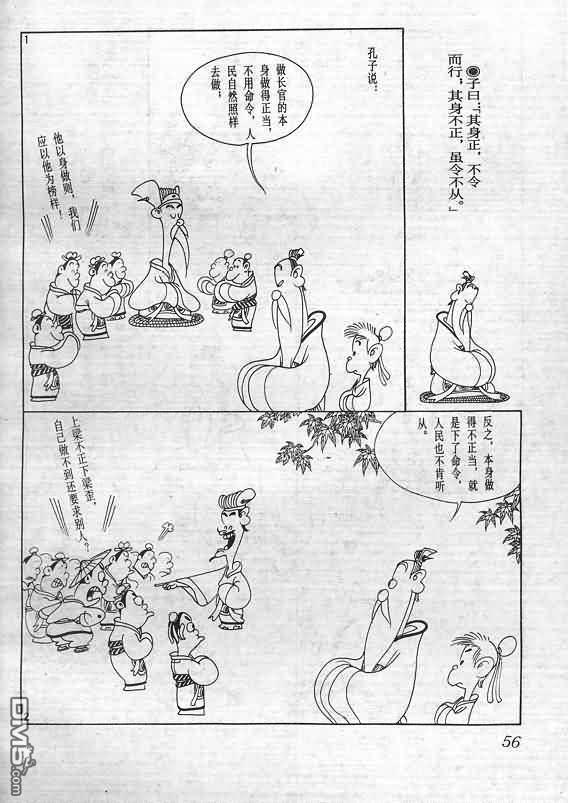 ◉子曰：「其身正，不令
而行；其身不正，虽令不从。」
1
孔子说：
做长官的本
身做得正当，
不用命令，人
民自然照样
去做；
他以身做则，我们
应以他为榜样！
反之，本身做
得不正当，就
是下了命令，
人民也不肯听
从。
上梁不正下梁歪，
自己做不到还要求别人？
56